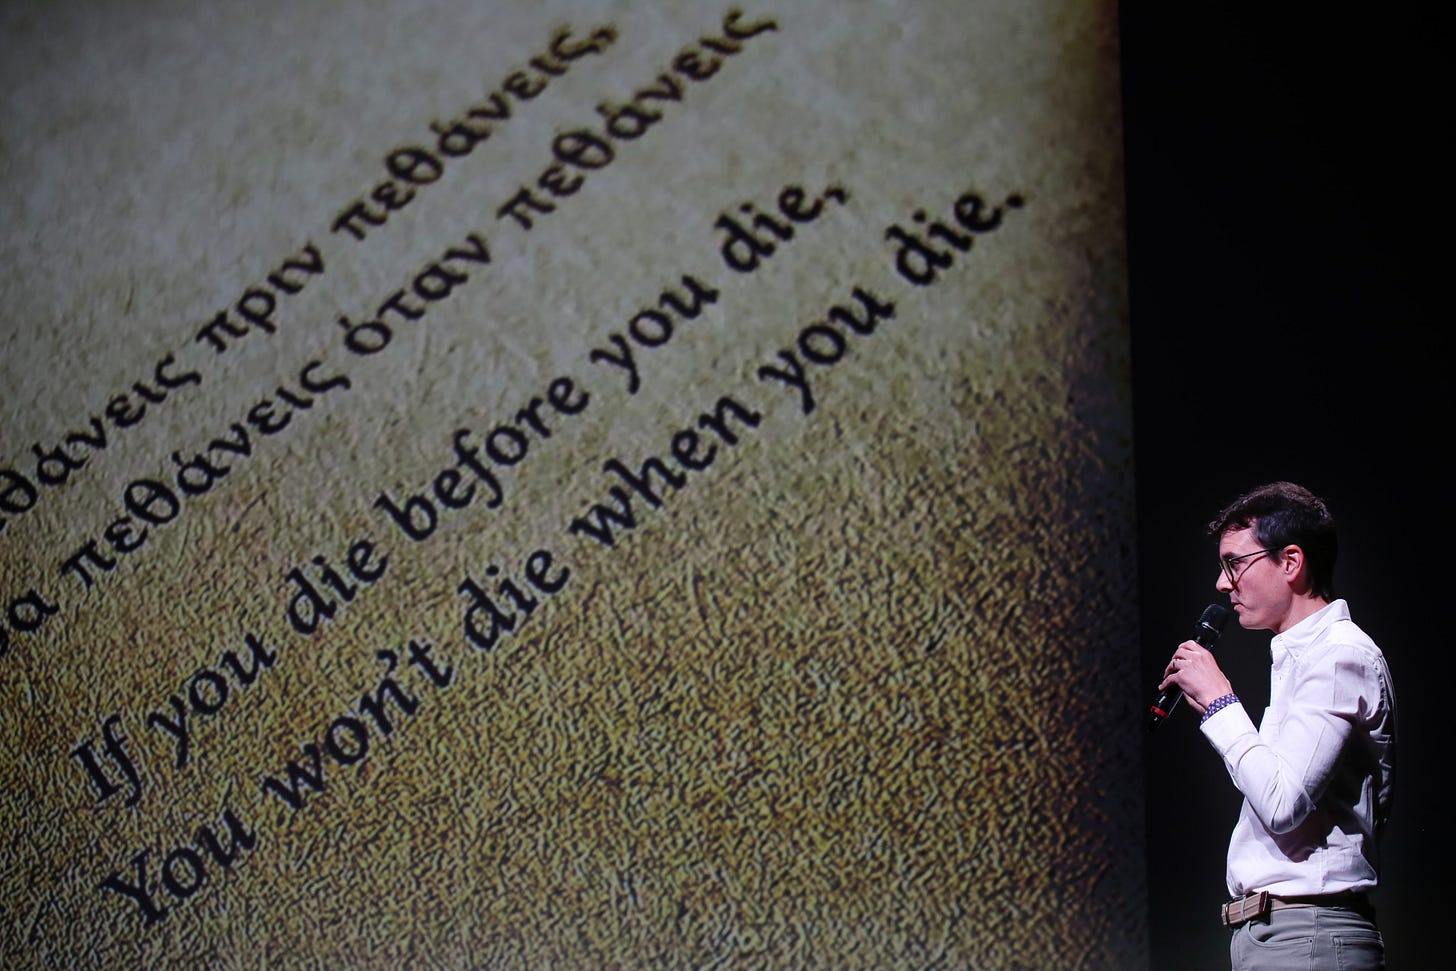 πριν πεθάνεις,
πεθάνεις όταν πεθάνεις
If you die before you die,
You won't die when you die.